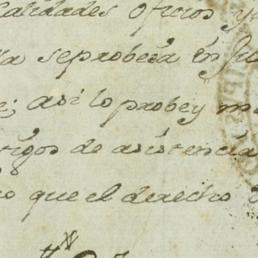 calidades oficios y
la se probeca en Ju
e; asi lo probey m
tigos de asistencia
o que el derecho